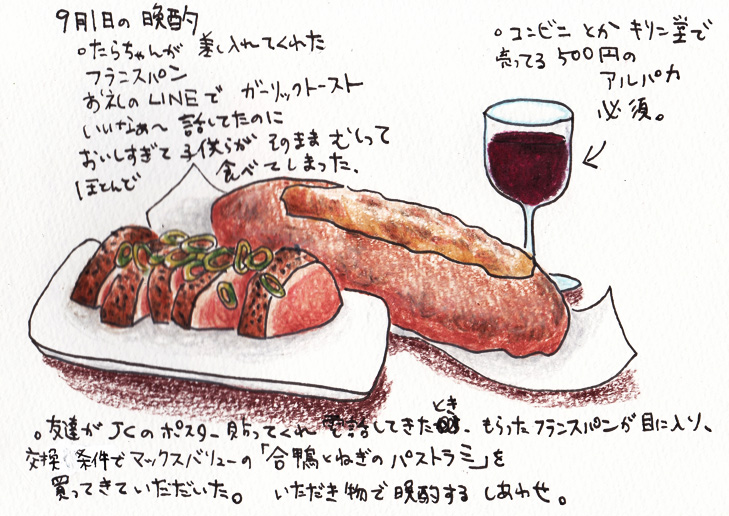 9月1日の 晩酌
。たらちゃんが 差し入れてくれた
フランスパン
お礼のLINEで ガーリックトースト
いいなぁ〜 話してたのに
おいしすぎて 子供らが そのまま むしって
ほとんど 食べてしまった、
。コンビニ とか キリン堂で
売ってる 500円の
アルパカ
必須。
。友達が JCのポスター 貼ってくれ 話してきた とき、もらったフランスパンが目に入り、
交換条件でマックスバリューの「合鴨とねぎのパストラミ」を
買ってきていただいた。 いただき物で晩酌する しあわせ。